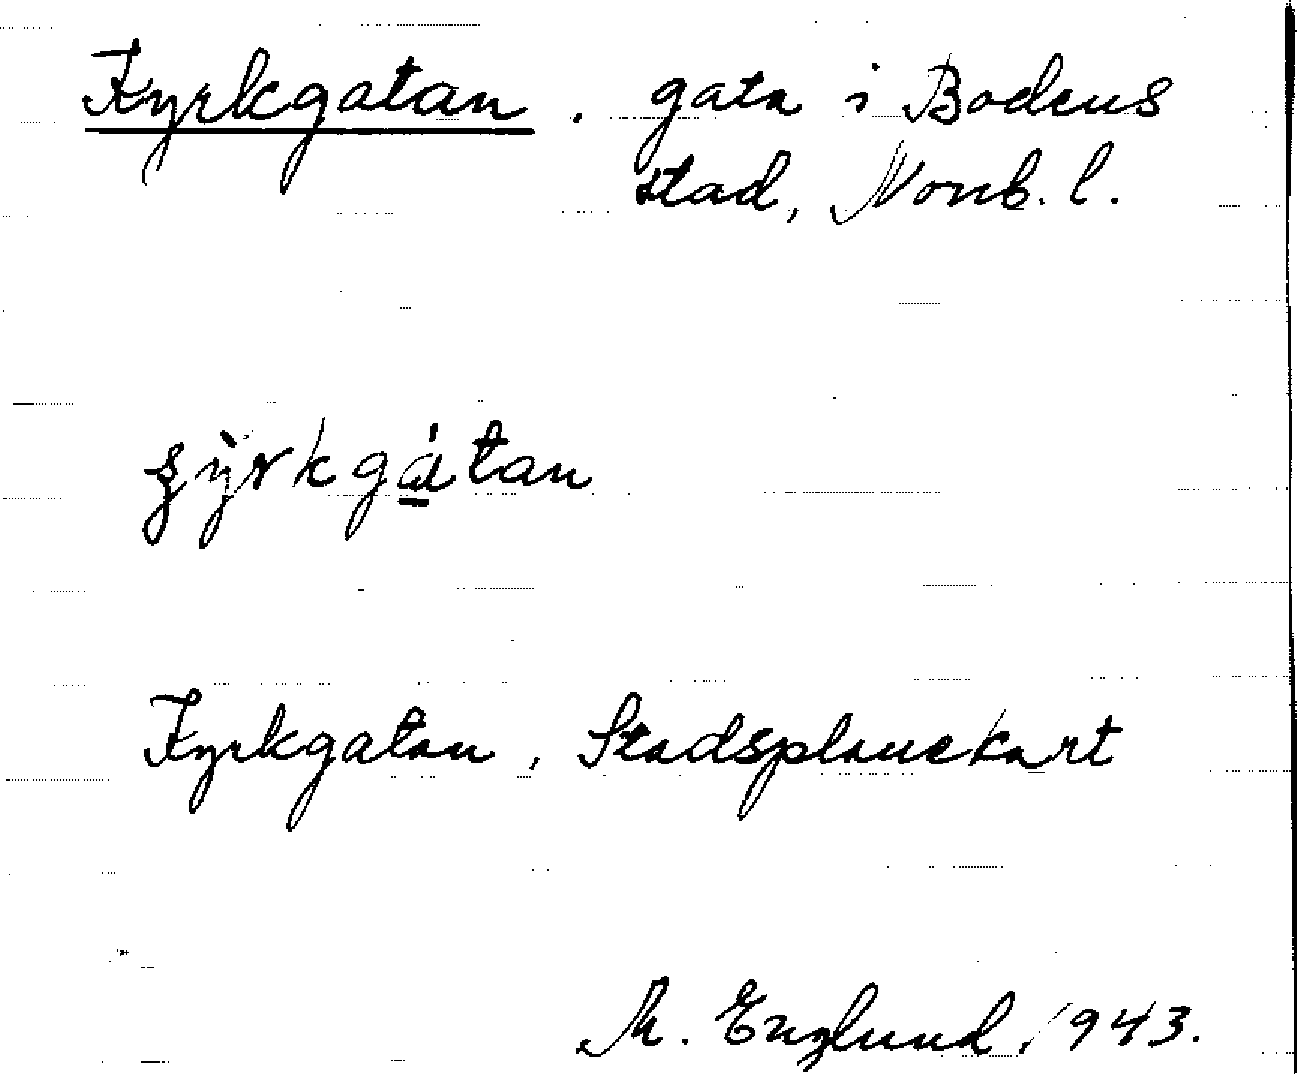 Kyrkgatan. gata i Bodens
stad, Norrb. l.
ʂỳrkgátan
Kyrkgatan, Stadsplanekart
M. Englund, 1943.